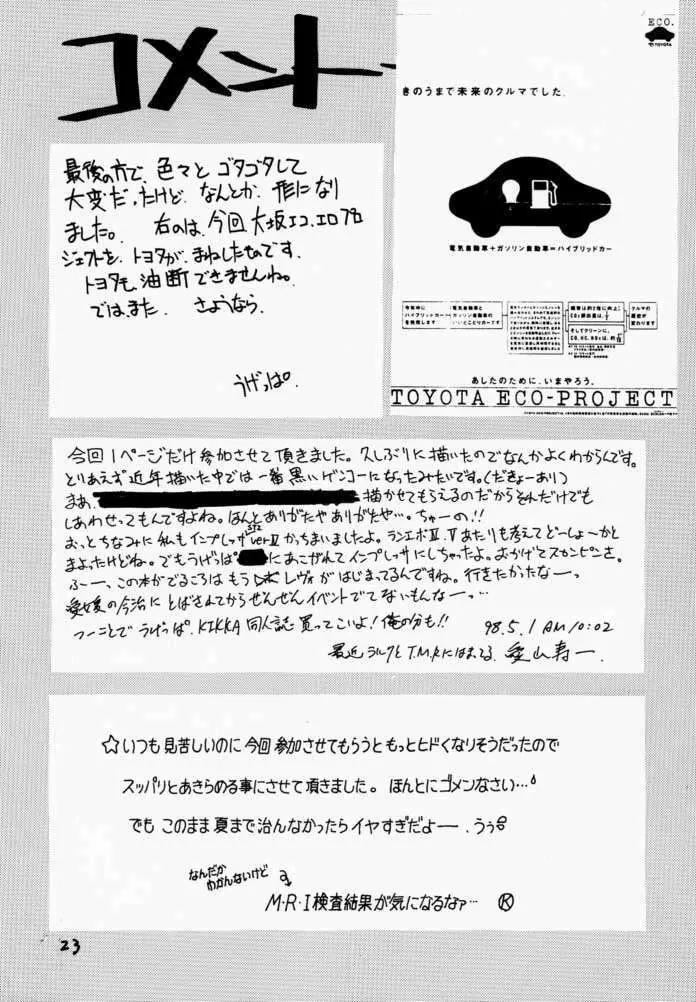 コメント
ECO.
TOYOTA
きのうまで未来のクルマでした。
電気自動車+ガソリン自動車=ハイブリッドカー
今年中に
ハイブリッドカー
を発売します
電気自動車と
ガソリン自動車の
いいとこどりカーです
効率は約2倍に向上
そしてクリーンに。
クルマの
歴史が
変わります
あしたのために、いまやろう。
TOYOTA ECO-PROJECT
最後の方で、色々と ゴタゴタして
大変だったけど なんとか 形になり
ました。 右のは、今回 大坂エコ.エロプロ
ジェクトを、トヨタが、まねしたものです。
トヨタも 油断できませんね。
では、また さようなら
うげっぱ。
今回1ページだけ参加させて頂きました。久しぶりに描いたのでなんかよくわからんです。
とりあえず近年描いた中では一番黒いゲンコーになったみたいです。(だきょーあり)
まあ、 描かせてもらえるのだからそれだけでも
しあわせってもんですよね。ほんとありがたやありがたや…。ちゅーの!!
おっとちなみに私もインプレッサ verⅣ かっちまいましたよ。ランエボⅣ.Ⅴあたりも考えてどーしょーかと
まよったけどね。でもうげっぱ にあこがれてインプレッサにしちゃったよ。おかげでスカンピンさ。
ふー、この本がでるころは もう レヴォ がはじまってるんですね。行きたかったなーっ
愛媛の今治に とばされてからぜんぜんイベントでてないもんなーっ…
つーことで うげっぱ. KIKKA 同人誌 買ってこいよ! 俺の分も!!
98.5.1 AM10:02
最近 ラルクと T.M.Rにはまってる 寿一
☆いつも見苦しいのに今回参加させてもらうともっとヒドくなりそうだったので
スッパリとあきらめる事にさせて頂きました。ほんとにゴメンなさい…
でも このまま夏まで治んなかったらイヤすぎだよー.うぅ
なんだか
わかんないけど
M・R・I検査結果が気になるなァ… Ⓚ
23